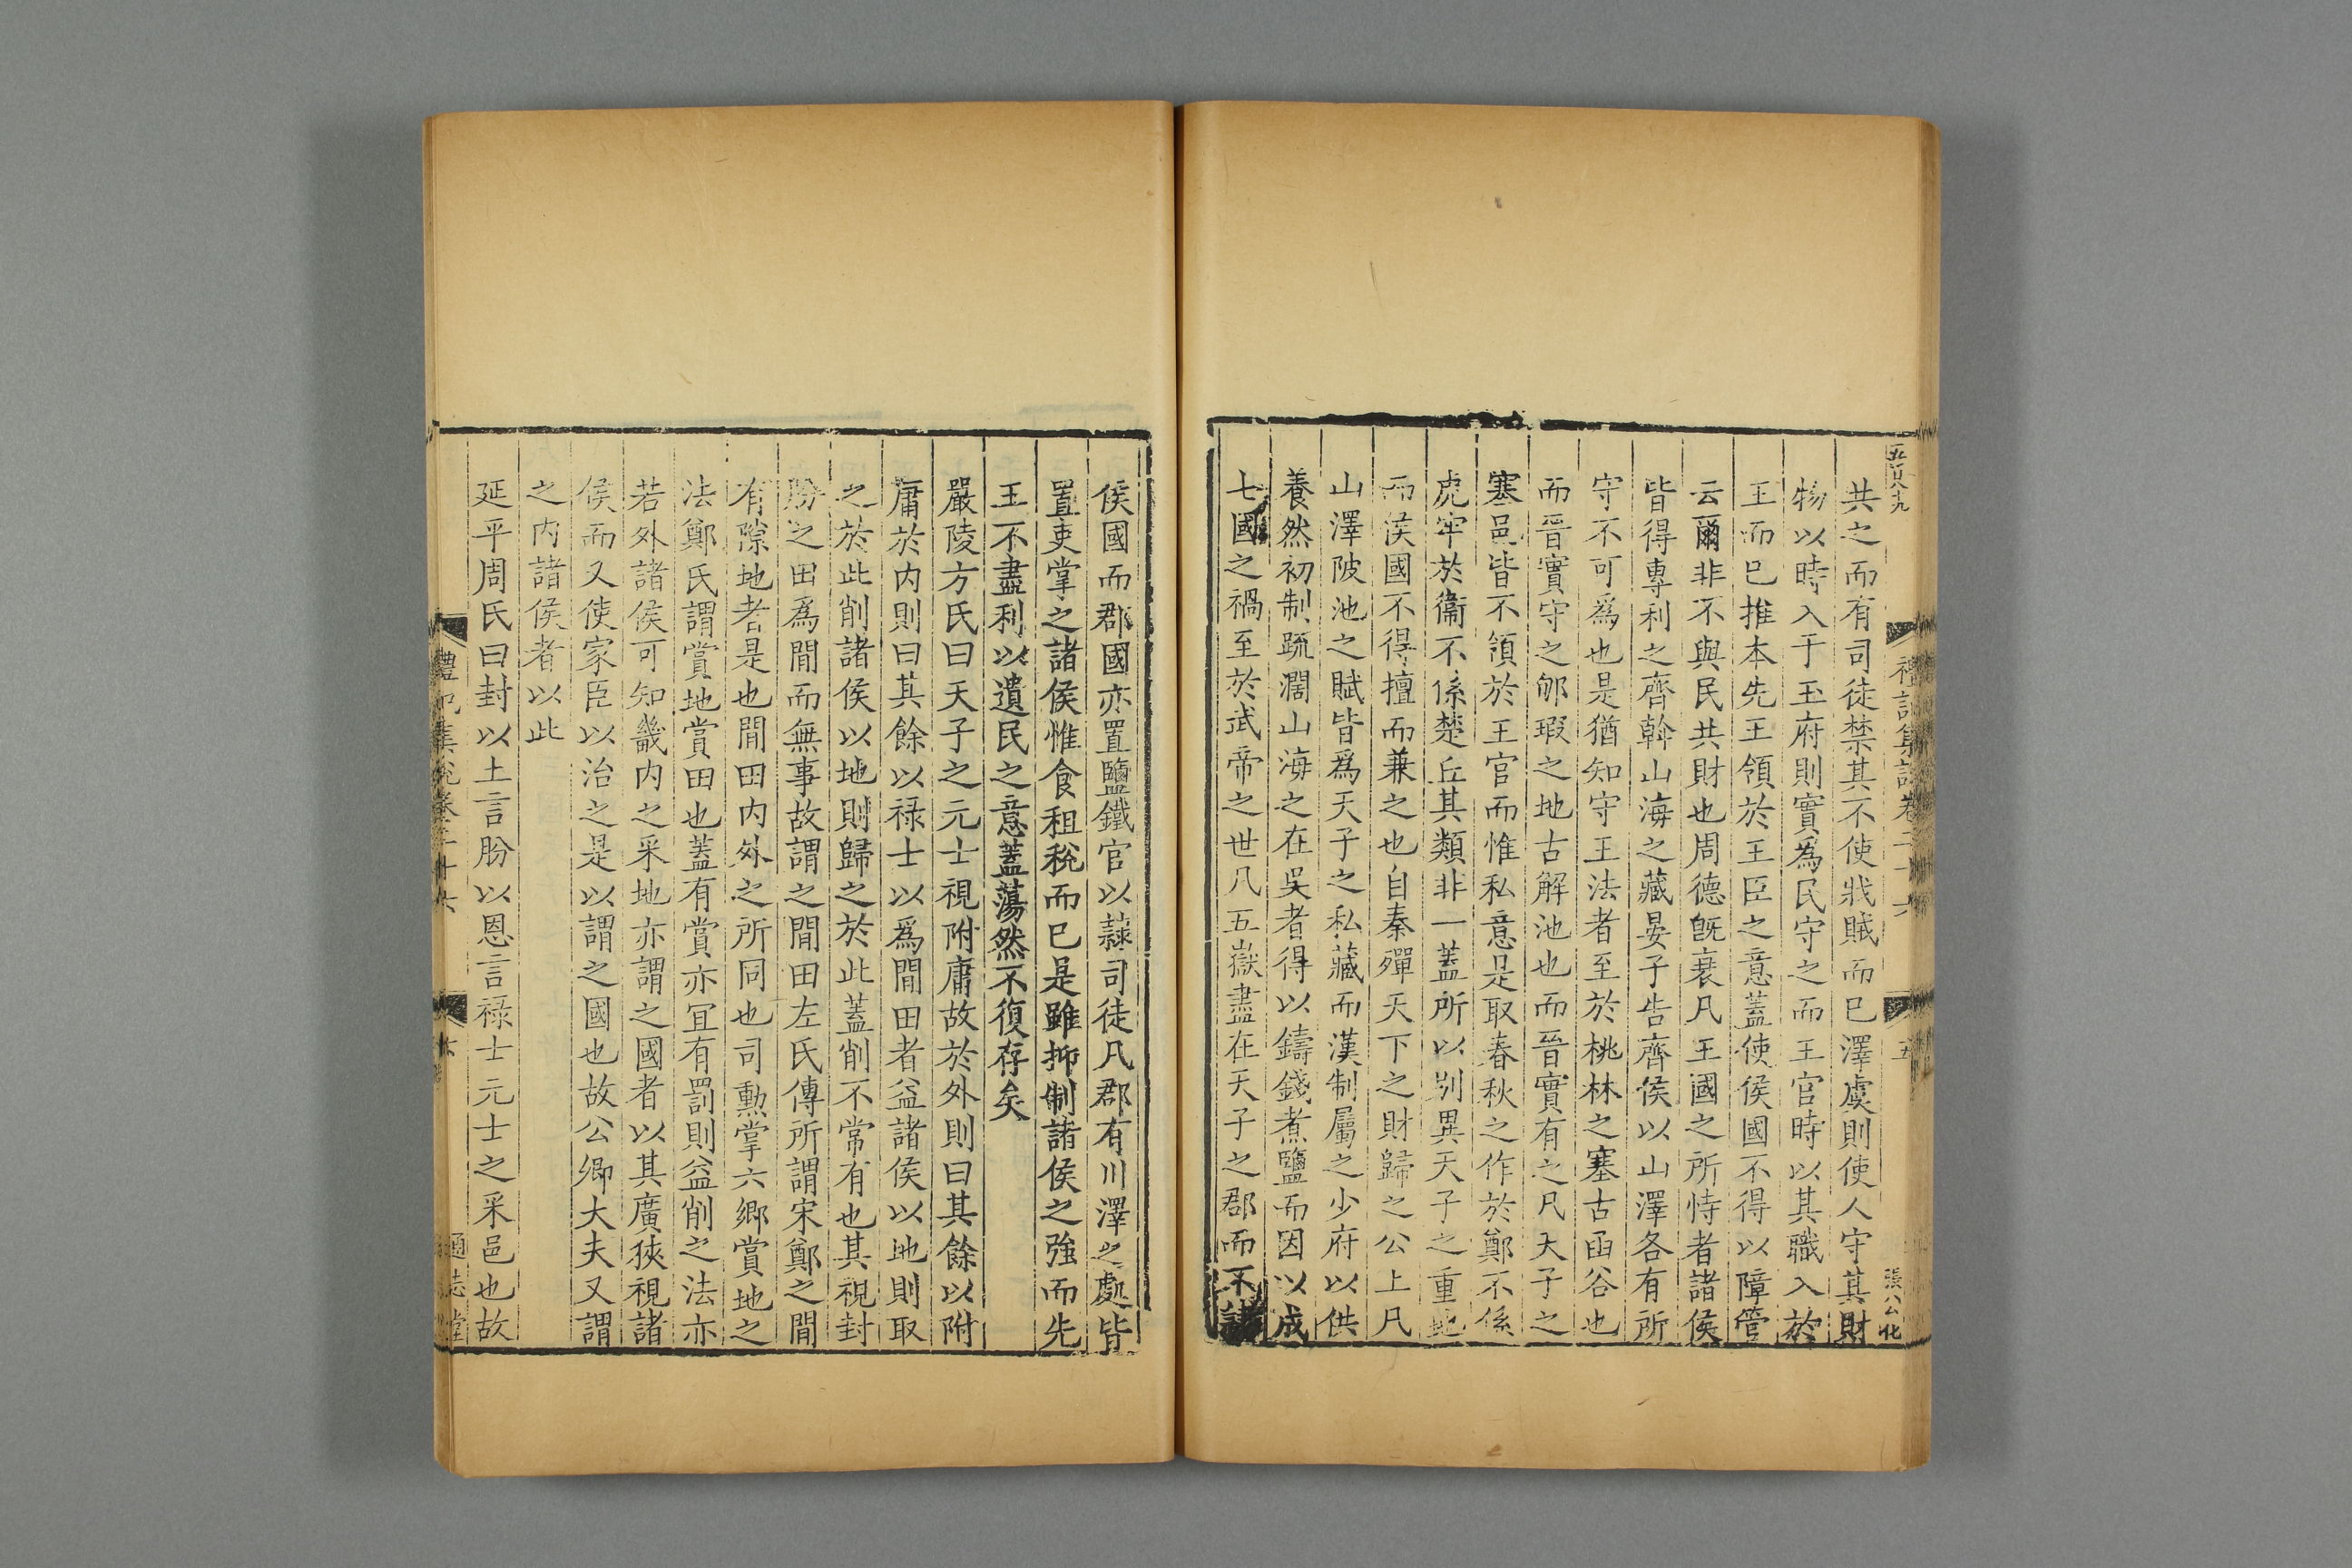 五百八十九
禮記集說卷二十六
五
張公化
共之而有司徒禁其不使戕賊而已澤虞則使人守其財
物以時入于玉府則實為民守之而王官時以其職入於
王而已推本先王領於王臣之意蓋使侯國不得以障管
云爾非不與民共財也周德旣衰凡王國之所恃者諸侯
皆得專利之齊斡山海之藏晏子告齊侯以山澤各有所
守不可爲也是猶知守王法者至於桃林之塞古函谷也
而晉實守之郇瑕之地古解池也而晉實有之凡天子之
塞邑皆不領於王官而惟私意是取春秋之作於鄭不係
虎牢於衞不係楚丘其類非一蓋所以別異天子之重地
而侯國不得擅而兼之也自秦殫天下之財歸之公上凡
山澤陂池之賦皆爲天子之私藏而漢制屬之少府以供
養然初制疏濶山海之在吳者得以鑄錢煮鹽而因以成
七國之禍至於武帝之世凡五嶽盡在天子之郡而不諸
侯國而郡國亦置鹽鐵官以隷司徒凡郡有川澤之處皆
置吏掌之諸侯惟食租稅而已是雖抑制諸侯之強而先
王不盡利以遺民之意蓋蕩然不復存矣
嚴陵方氏曰天子之元士視附庸故於外則曰其餘以附
庸於内則曰其餘以祿士以爲閒田者益諸侯以地則取
之於此削諸侯以地則歸之於此蓋削不常有也其視封
肦之田爲閒而無事故謂之閒田左氏傳所謂宋鄭之閒
有隙地者是也閒田内外之所同也司勲掌六鄉賞地之
法鄭氏謂賞地賞田也蓋有賞亦冝有罰則益削之法亦
若外諸侯可知畿内之采地亦謂之國者以其廣狹視諸
侯而又使家臣以治之是以謂之國也故公卿大夫又謂
之内諸侯者以此
延平周氏曰封以土言肦以恩言祿士元士之采邑也故
禮記集說卷二十六
六
通志堂